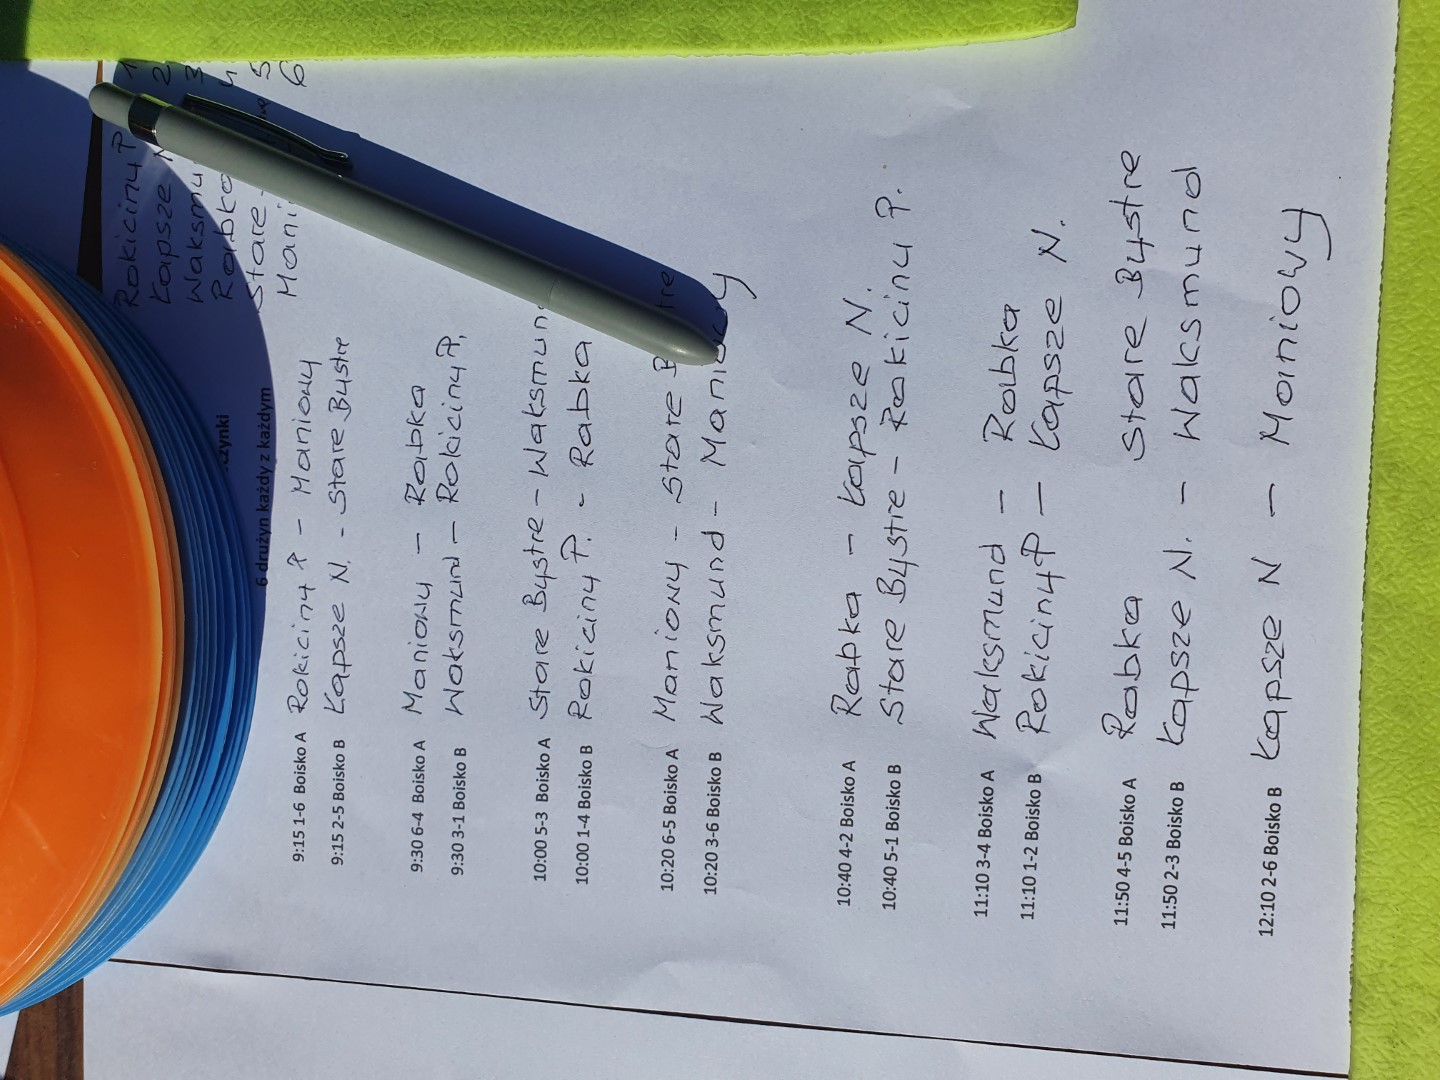 Rokiciny P 1
Kapsze 2
Waksmu 3
Rabka 4
Stare 5
Mani 6
zynki
6 drużyn każdy z każdym
9:15 1-6 Boisko A Rokiciny P - Maniowy
9:15 2-5 Boisko B Kapsze N. - Stare Bystre
9:30 6-4 Boisko A Maniowy - Rabka
9:30 3-1 Boisko B Waksmund - Rokiciny P.
10:00 5-3 Boisko A Stare Bystre - Waksmun
10:00 1-4 Boisko B Rokiciny P. - Rabka
10:20 6-5 Boisko A Maniowy - Stare B tre
10:20 3-6 Boisko B Waksmund - Maniowy
10:40 4-2 Boisko A Rabka - Kapsze N.
10:40 5-1 Boisko B Stare Bystre - Rokiciny P.
11:10 3-4 Boisko A Waksmund - Rabka
11:10 1-2 Boisko B Rokiciny P - Kapsze N.
11:50 4-5 Boisko A Rabka Stare Bystre
11:50 2-3 Boisko B Kapsze N. - Waksmund
12:10 2-6 Boisko B Kapsze N - Maniowy